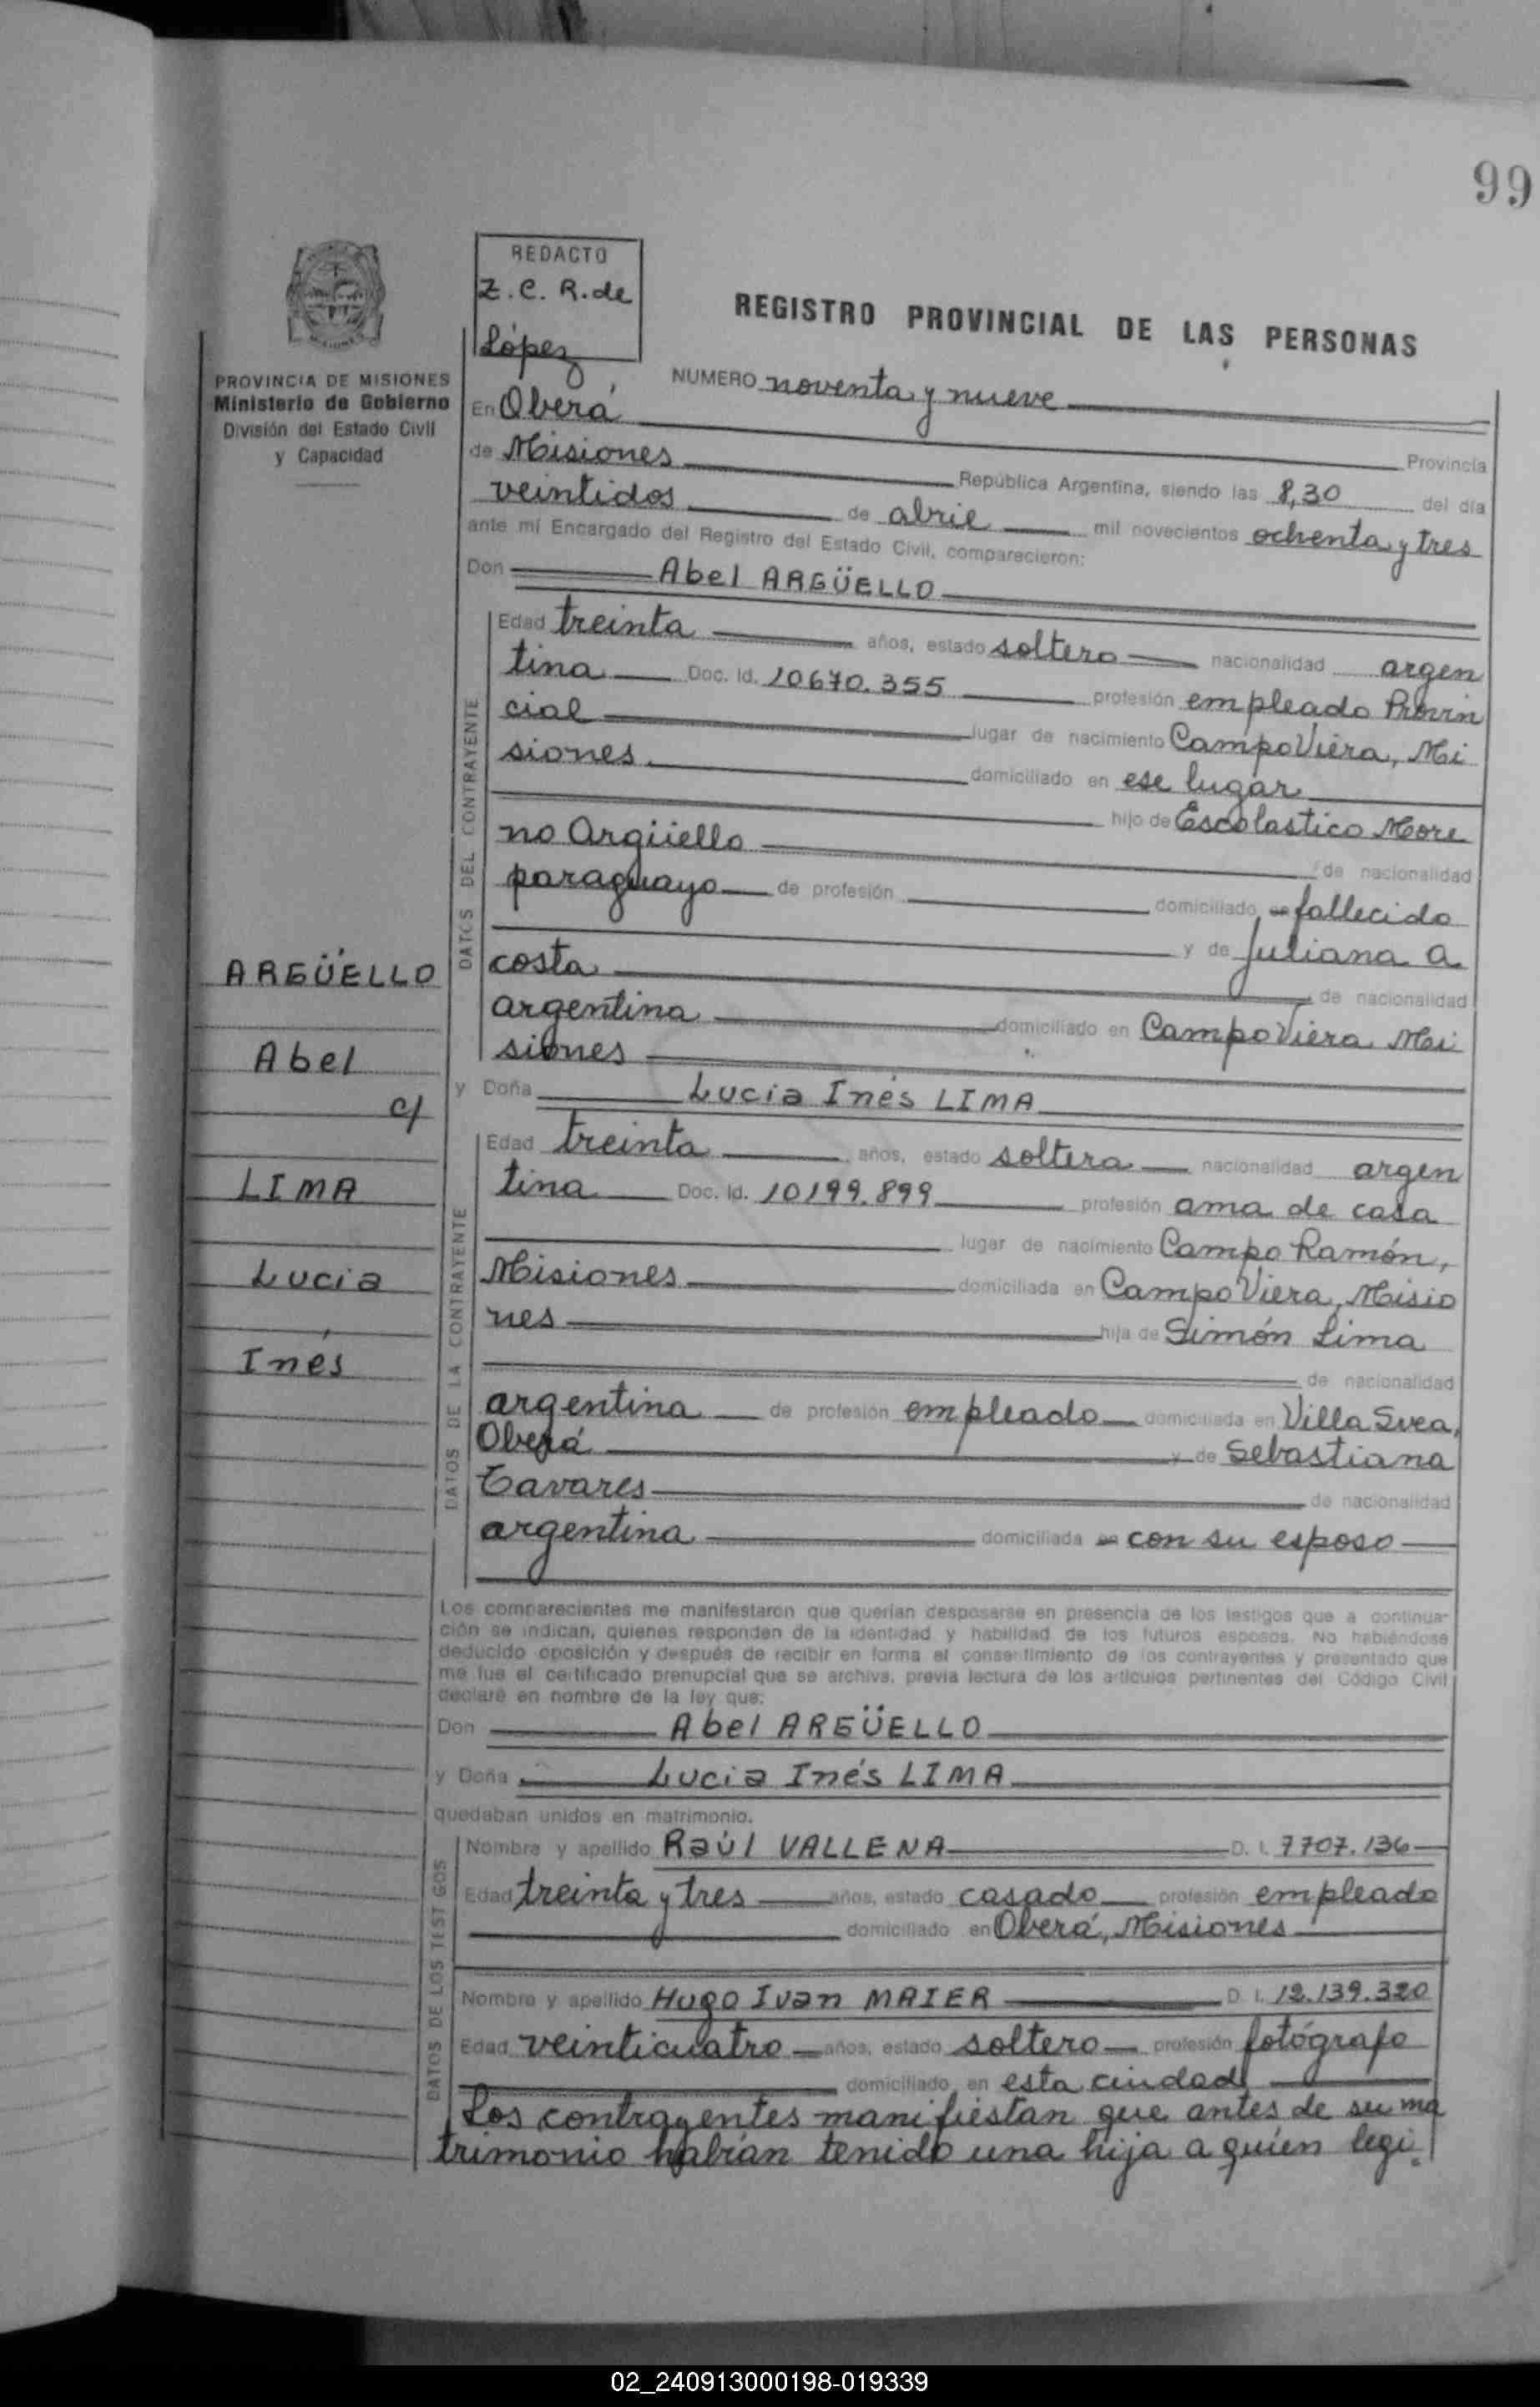 99
REDACTO
Z. C. R. de
López
REGISTRO PROVINCIAL DE LAS PERSONAS
PROVINCIA DE MISIONES
Ministerio de Gobierno
División del Estado Civil
y Capacidad
NUMERO noventa y nueve
En Oberá
Provincia
de Misiones República Argentina, siendo las 8,30 del día
veintidos de abril mil novecientos ochenta y tres
ante mí Encargado del Registro del Estado Civil, comparecieron:
Don Abel ARGÜELLO
DATOS DEL CONTRAYENTE
Edad treinta años, estado soltero nacionalidad argen
tina Doc. Id. 10670.355 profesión empleado Provin
cial lugar de nacimiento Campo Viera, Mi
siones domiciliado en ese lugar
hijo de Escolastico More
no Argüello de nacionalidad
paraguayo de profesión domiciliado en fallecido
y de Juliana A
costa de nacionalidad
argentina domiciliado en Campo Viera Mi
siones
ARGÜELLO
Abel
c/
LIMA
Lucia
Inés
y Doña Lucia Inés LIMA
DATOS DE LA CONTRAYENTE
Edad treinta años, estado soltera nacionalidad argen
tina Doc. Id. 10199.899 profesión ama de casa
lugar de nacimiento Campo Ramón,
Misiones domiciliada en Campo Viera, Misio
nes hija de Simón Lima
de nacionalidad
argentina de profesión empleado domiciliada en Villa Svea,
Oberá y de Sebastiana
Tavares de nacionalidad
argentina domiciliada en con su esposo
Los comparecientes me manifestaron que querían desposarse en presencia de los testigos que a continua-
ción se indican, quienes responden de la identidad y habilidad de los futuros esposos. No habiéndose
deducido oposición y después de recibir en forma el consentimiento de los contrayentes y presentado que
me fue el certificado prenupcial que se archiva, previa lectura de los artículos pertinentes del Código Civil
declaré en nombre de la ley que:
Don Abel ARGÜELLO
y Doña Lucia Inés LIMA
quedaban unidos en matrimonio.
DATOS DE LOS TESTIGOS
Nombre y apellido Raúl VALLENA D. I. 7707.136
Edad treinta y tres años, estado casado profesión empleado
domiciliado en Oberá, Misiones
Nombre y apellido Hugo Ivan MAIER D. I. 12.139.320
Edad veinticuatro años, estado soltero profesión fotógrafo
domiciliado en esta ciudad
Los contrayentes manifiestan que antes de su ma
trimonio habían tenido una hija a quien legi
02_240913000198-019339